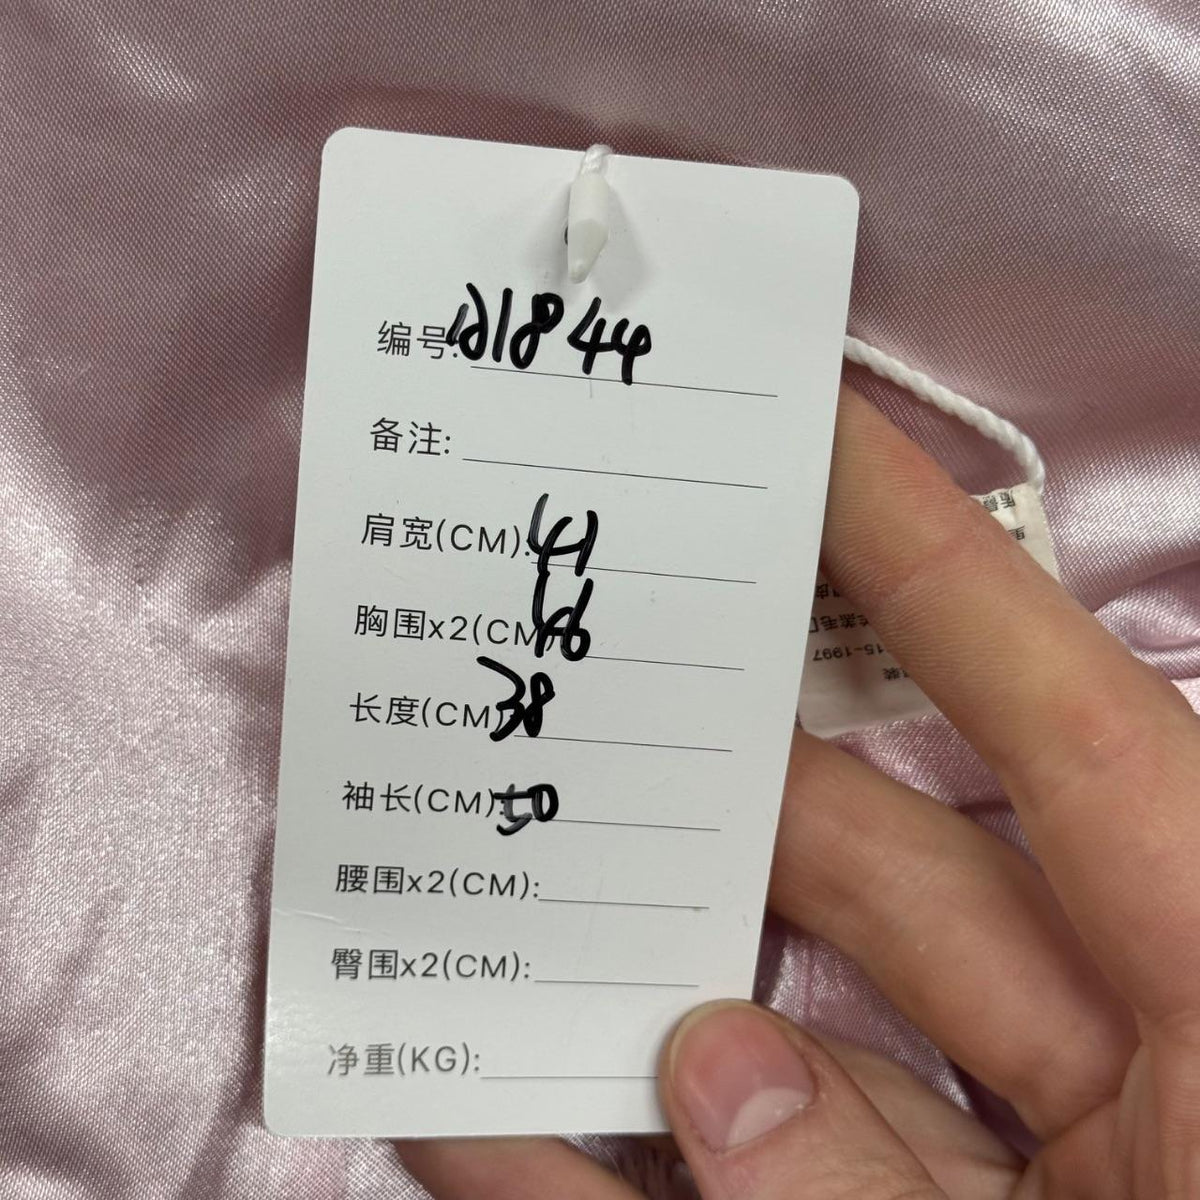 编号: a1844
备注:
肩宽(CM): 41
胸围x2(CM): 46
长度(CM): 38
袖长(CM): 50
腰围x2(CM):
臀围x2(CM):
净重(KG):
15-1997